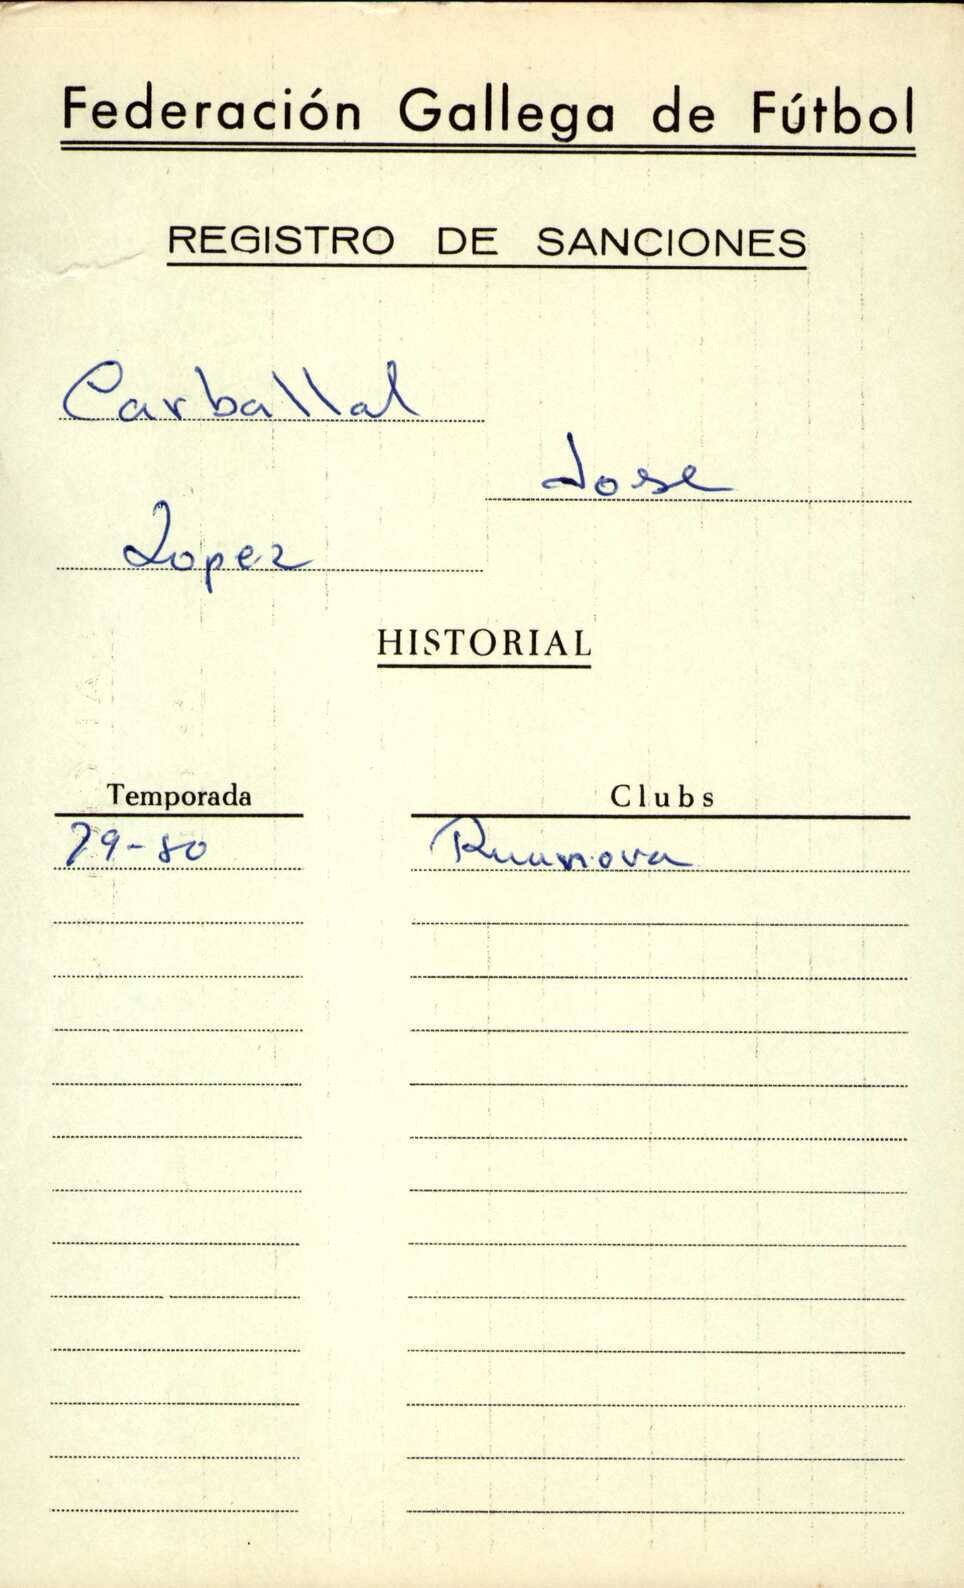 Federación Gallega de Fútbol
REGISTRO DE SANCIONES
Carballal
Jose
Lopez
HISTORIAL
Temporada Clubs
79-80 Ruanova